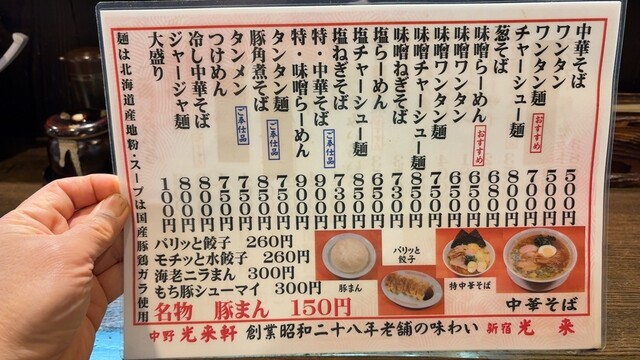 中華そば 500円
ワンタン 500円
ワンタン麺 おすすめ 700円
チャーシュー麺 800円
葱そば 680円
味噌らーめん おすすめ 650円
味噌ワンタン 650円
味噌ワンタン麺 750円
味噌チャーシュー麺 850円
味噌ねぎそば 730円
塩らーめん 650円
塩チャーシュー麺 850円
塩ねぎそば 730円
特・中華そば ご奉仕品 900円
特・味噌らーめん 900円
タンタン麺 ご奉仕品 750円
豚角煮そば 850円
タンメン ご奉仕品 750円
つけめん 750円
冷し中華そば 800円
ジャージャ麺 800円
大盛り 100円
麺は北海道産地粉・スープは国産豚鶏ガラ使用
パリッと餃子 260円
モチッと水餃子 260円
海老ニラまん 300円
もち豚シューマイ 300円
名物 豚まん 150円
豚まん
パリッと
餃子
特中華そば
中華そば
中野 光来軒 創業昭和二十八年老舗の味わい 新宿 光来